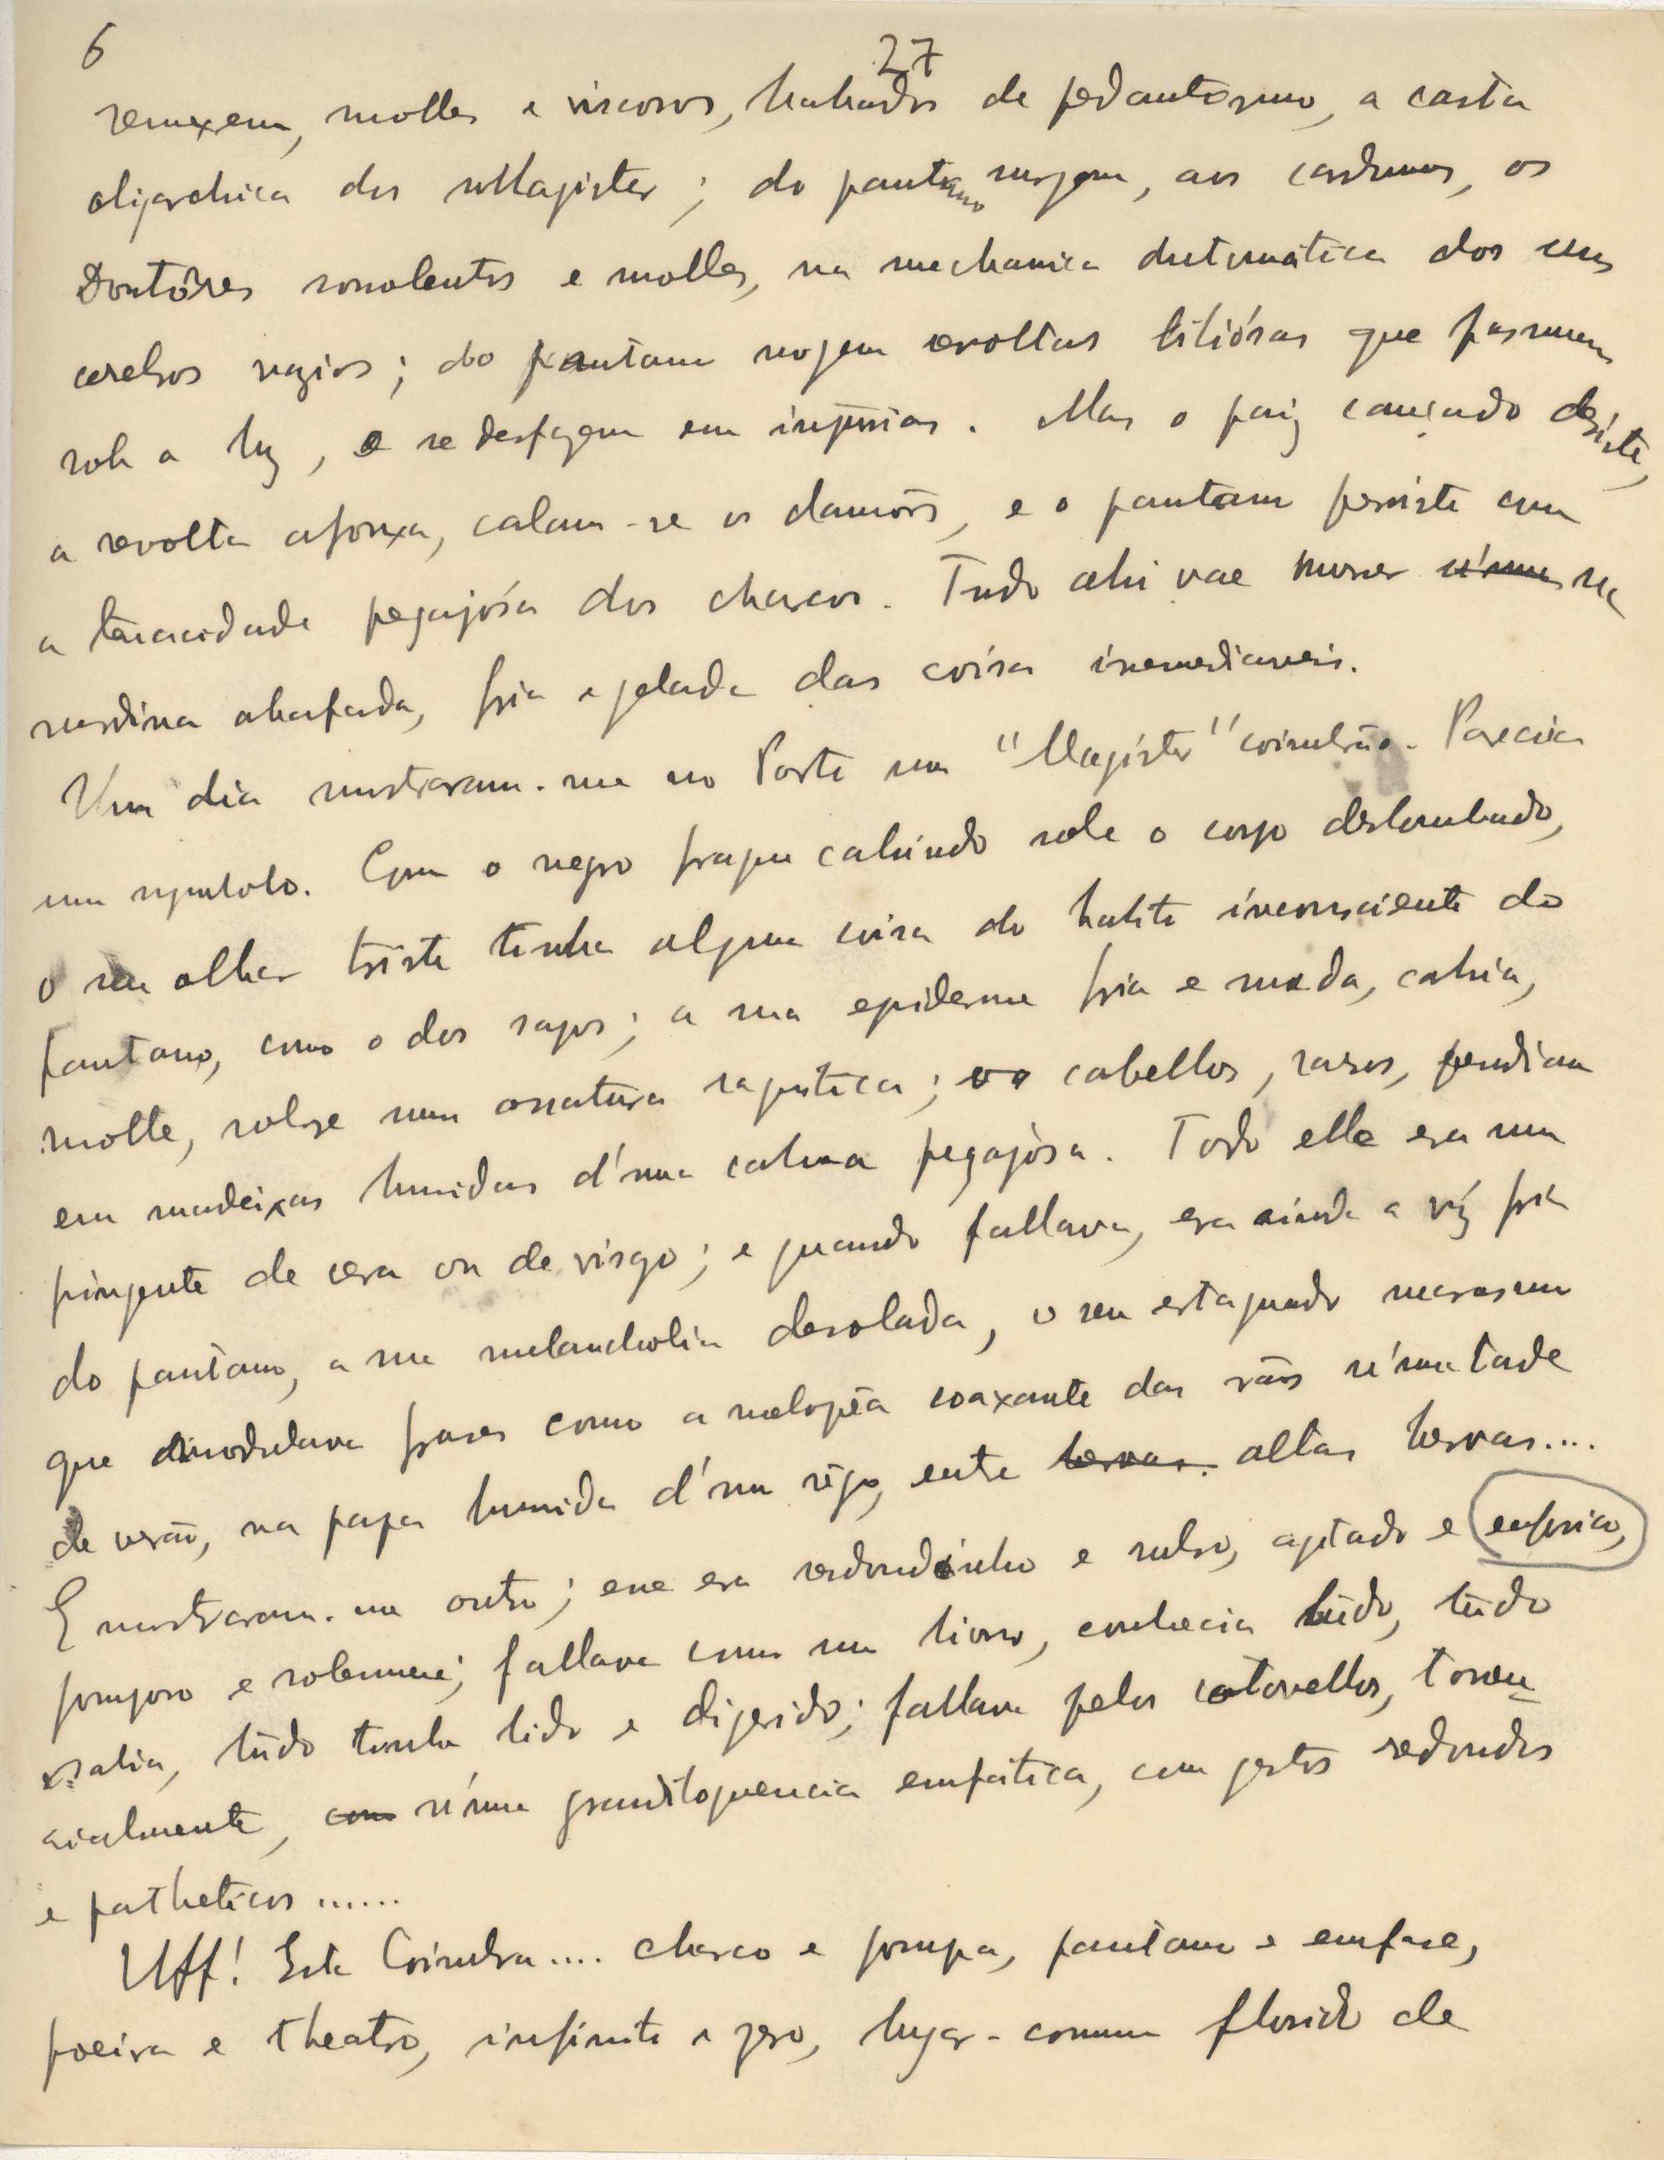 6
27
remexem, molles e viscosos, babados de pedantismo, a casta
oligarchica dos Magister; do pantano surgem, aos cardumes, os
Doutôres sonolentos e molles, na mechanica automática dos seus
cerebros vazios; do pantano surgem revoltas biliósas que pasmam
sob a luz, e se desfazem em injurias. Mas o paiz cançado desiste,
a revolta afrouxa, calam-se os clamôres, e o pantano persiste com
a tenacidade pegajósa dos charcos. Tudo ahi vae morrer n'uma na
surdina abafada, fria e gelada das coisa irremediaveis.
Um dia mostraram-me no Porto um "Magister" coimbrão. Parecia
um symbolo. Com o negro fraque cahindo sobre o corpo deslombado,
o seu olhar triste tinha alguma coisa do halito inconsciente do
pantano, como o dos sapos; a sua epiderme fria e muda, cahia,
molle, sobre uma ossatura raquitica; os cabellos, raros, pendiam
em madeixas humidas d'uma calma pegajósa. Todo elle era um
pingente de cera ou de visgo; e quando fallava, era ainda a vóz fria
do pantano, a sua melancholia desolada, o seu estagnado marasmo
que modulava frases como a melopêa coaxante das rãs n'uma tarde
de verão, na papa humida d'um rêgo, entre hervas. altas hervas....
E mostraram-me outro; esse era redondinho e rubro, agitado e
pomposo e solemne; fallava como um livro, conhecia tudo, tudo
sabia, tudo tinha lido e digerido; fallava pelos cotovellos, toren-
cialmente, com n'uma grandiloquencia emfatica, com gestos redondos
e patheticos......
Uff! Esta Coimbra.... charco e pompa, pantano e emfase,
poeira e theatro, infinito e zero, lugar-comum florido de